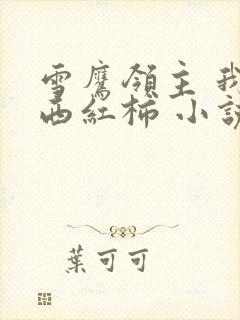 雪鷹領主 我
西紅柿 小説
葉可可